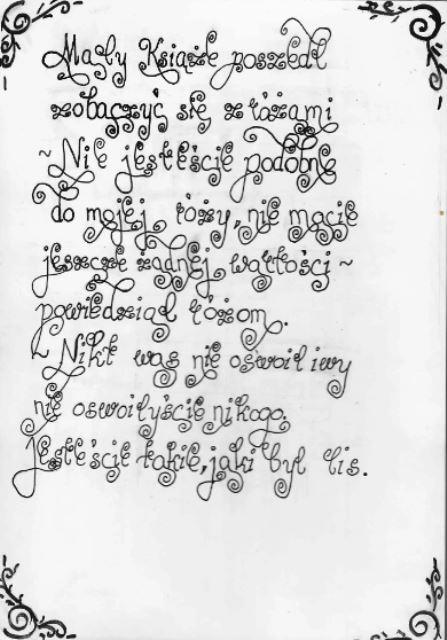 Mały Książe poszedł
zobaczyć się z różami
~ Nie jesteście podobne
do mojej róży, nie macie
jeszcze żadnej wartości ~
powiedział różom.
~ Nikt was nie oswoił i wy
nie oswoiłyście nikogo.
Jesteście takie, jaki był lis.